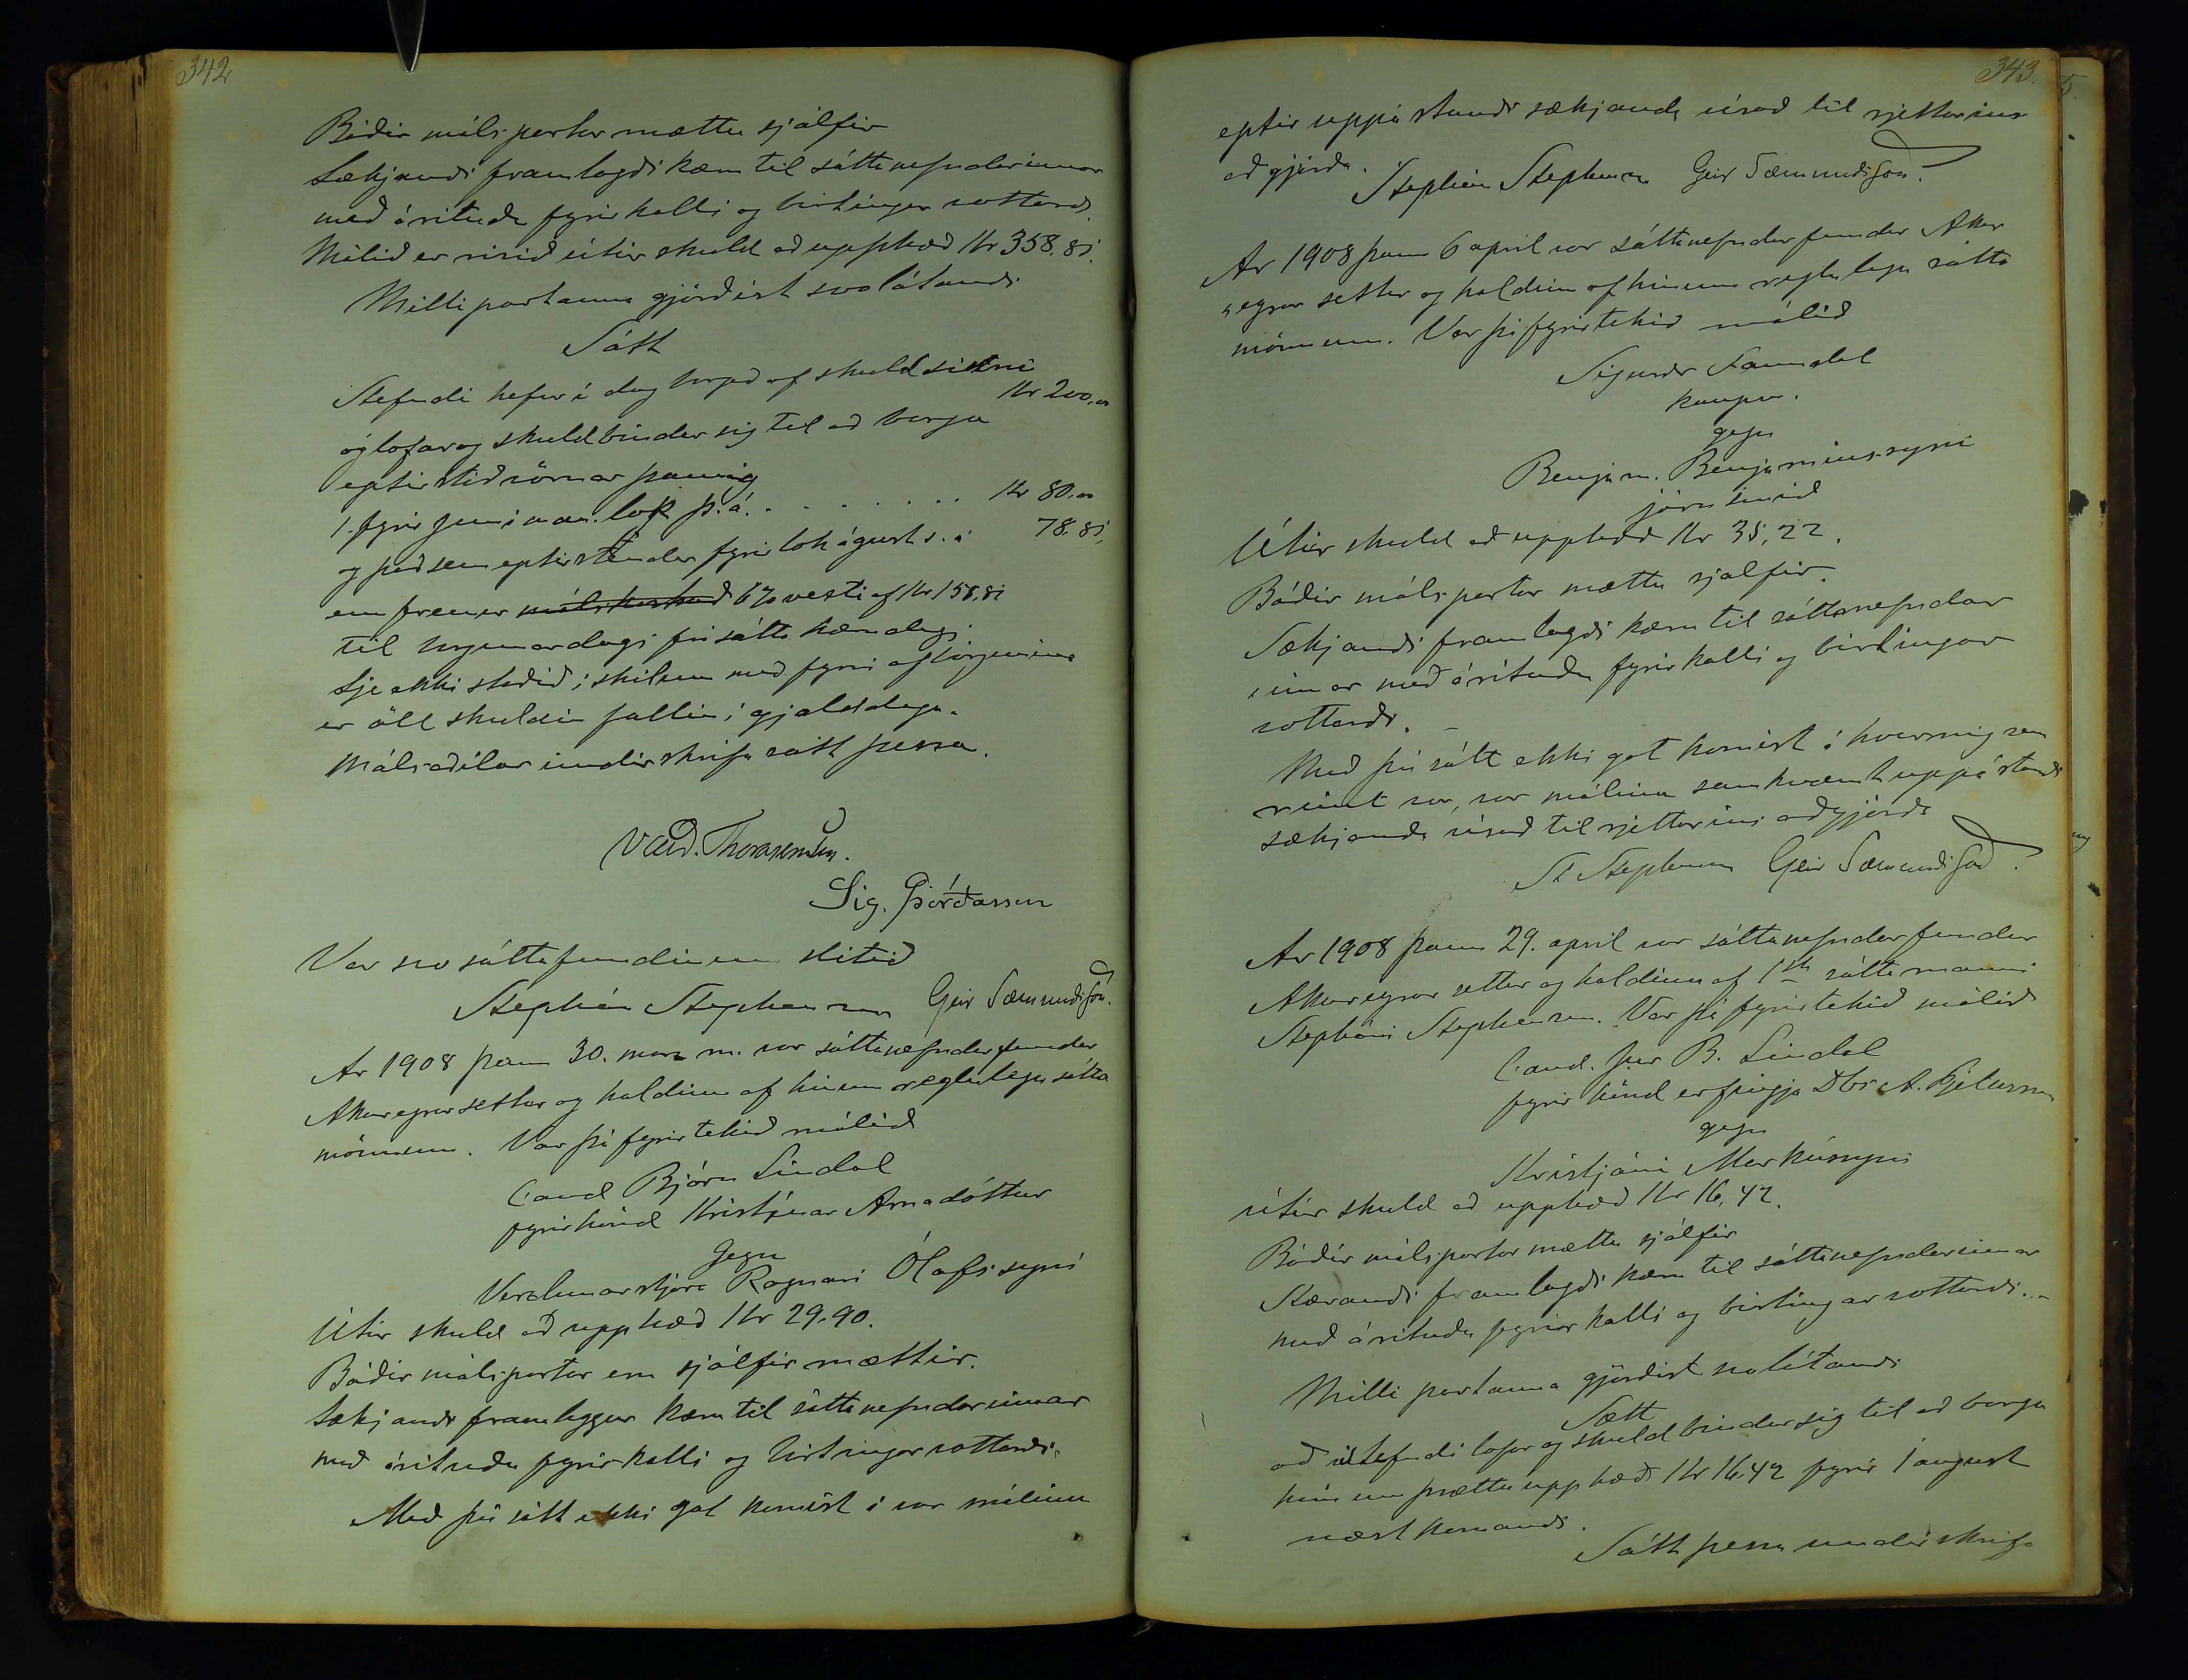 342
Báðir málspartar mættu sjálfir
Sækjandi framlagði kæru til sáttanefndarinnar
með árituðu fyrirkalli og birtingar vottorði.
Málið er risið útúr skuld að upphæð Kr 358,81.
Milli partanna gjörðist svolátandi
Sátt
Stefndi hefur í dag borgað af skuld sinni
Kr 200,00
og lofar og skuldbindur sig til að borga
eptirstöðvarnar þannig
1. fyrir júnímán. lok þ.á. . . . . . . . Kr 80.00
og það sem eptir stendur fyrir lok ágúst s. á 78,81,
enn fremur málskostnað 6% vexti af Kr 158,81
til borgunardags frá sáttakærudegi.
Sje ekki staðið í skilum með fyrri afborgunina
er öll skuldin fallin í gjalddaga.
Málsaðilar undirskrifa sátt þessa.
Vald. Thorarensen.
Sig. Þórðarson
Var svo sáttafundinum slitið
Stephán Stephensen Geir Sæmundsson.
Ár 1908 þann 30. marz m. var sáttanefndarfundur
Akureyrar settur og haldinn af hinum reglulegu sátta
mönnum. Var þá fyrirtekið málið
Cand Björn Líndal
fyrir hönd Kristínar Árnadóttur
Gegn
Verslunarstjóra Ragnari Ólafssyni
Útúr skuld að upphæð Kr 29.90.
Báðir málspartar eru sjálfir mættir.
Sækjandi framleggur kæru til sáttanefndarinnar
með árituðu fyrirkalli og birtingarvottorði.
Með því sátt ekki gat komist á var málinu
343.
eptir uppástandi sækjanda vísað til rjettarins
aðgjörða.
Stephán Stephensen Geir Sæmundsson.
Ár 1908 þann 6 apríl var sáttanefndarfundur Akur
"eyrar settur og haldinn af hinum reglulegu sátta
mönnum. Var þá fyrirtekið málið
Sigurður Fanndal
kaupm.
gegn
Benjam. Benjamínssyni
járnsmið
Útúr skuld að upphæð Kr 35,22.
Báðir málspartar mættu sjálfir.
Sækjandi framlagði kæru til sáttanefndar
innar með árituðu fyrirkalli og birtingar
vottorði. –
Með því sátt ekki gat komist á hvernig sem
reynt var, var málinu samkvæmt uppástandi
sækjanda vísað til rjettarins aðgjörða
St Stephensen Geir Sæmundsson.
Ár 1908 þann 29. apríl var sáttanefndarfundur
Akureyrar settur og haldinn af 1sta sáttamanni
Stepháni Stephensen. Var þá fyrirtekið málið
Cand. jur B. Líndal
fyrir hönd erfingja Dbs A. Pjetursson
gegn
Kristjáni Markússyni
útúr skuld að upphæð Kr 16,42.
Báðir málspartar mættu sjálfir
Kærandi framlagði kæru til sáttanefndarinnar
með árituðu fyrirkalli og birtingarvottorði.–
Milli partanna gjörðist svolátandi
Sátt
að stefndi lofar og skuldbindur sig til að borga
hina umþrættu upphæð Kr 16,42 fyrir 1 august
næstkomandi.
Sátt þessa undirskrifa